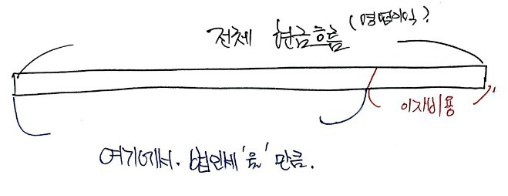 전체 현금흐름 (영업이익?)
이자비용
여기에서. 법인세'율'만큼.